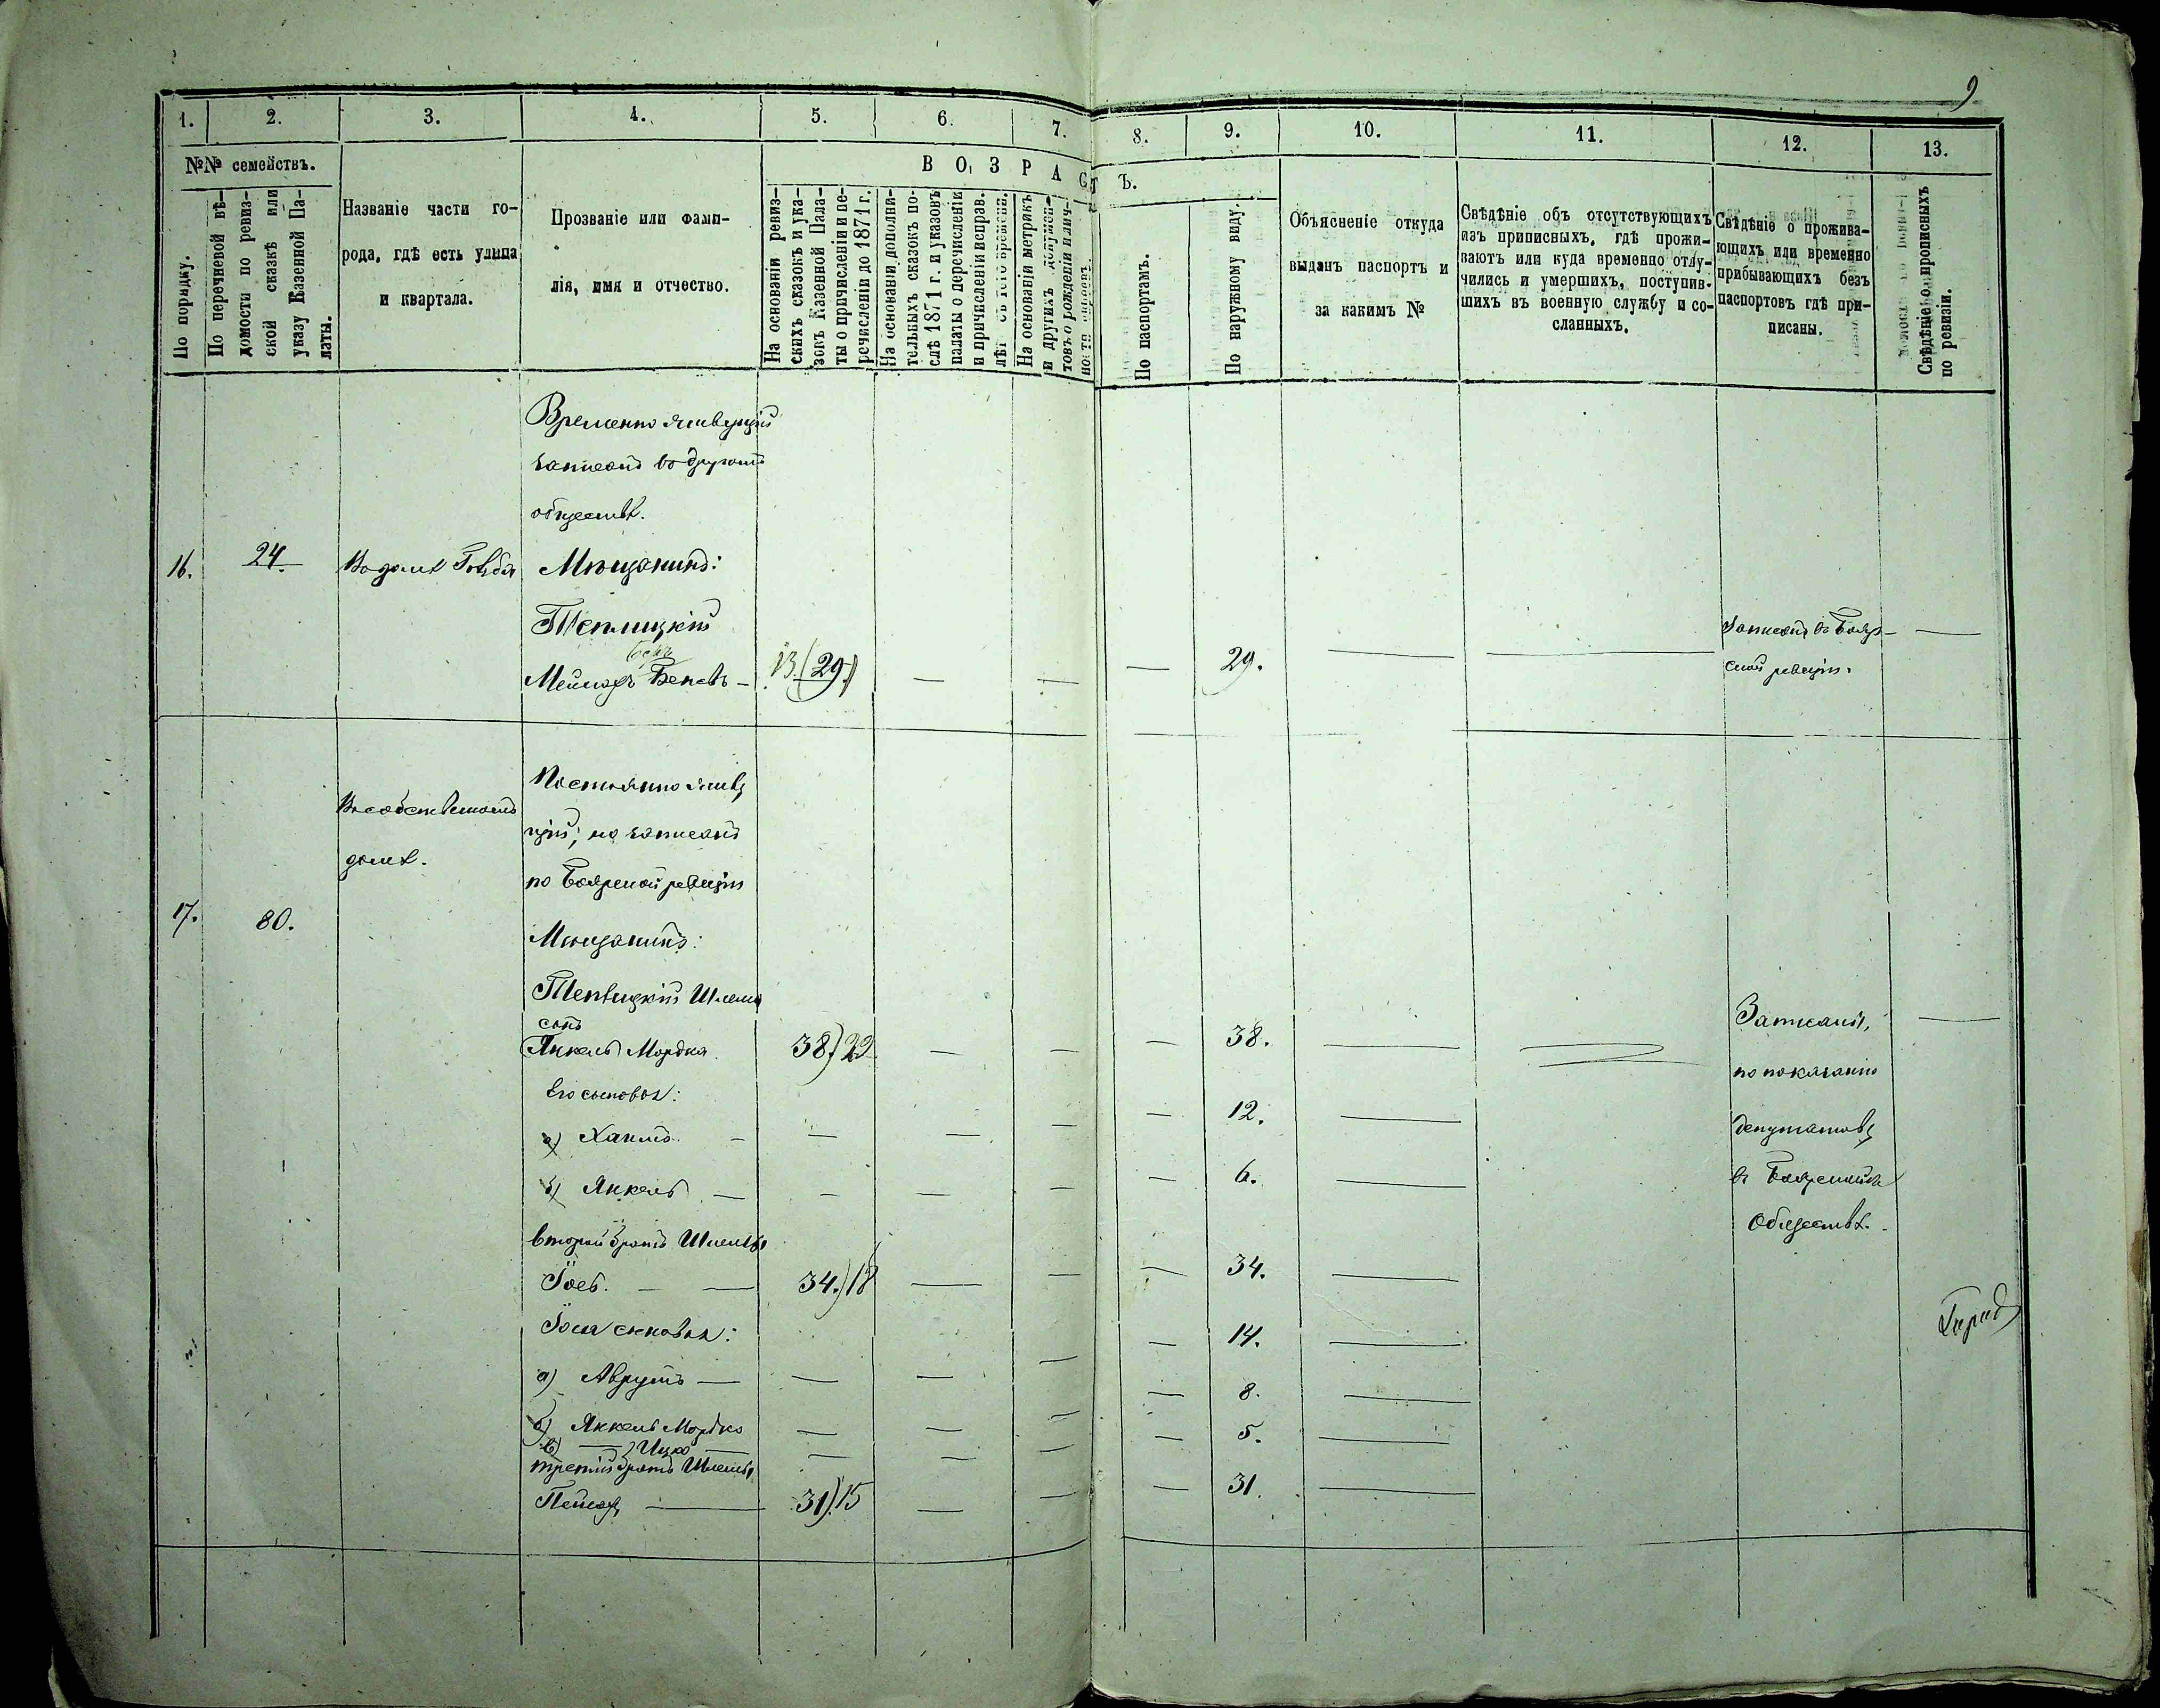 9
1. 2. 3. 4. 5. 6. 7. 8. 9. 10. 11. 12. 13.
№№ семействъ.
По порядку.
По перечневой вѣ-
домости по ревиз-
ской сказкѣ или
указу Казенной Па-
латы.
Названіе части го-
рода, гдѣ есть улица
и квартала.
Прозваніе или фами-
лія, имя и отчество.
ВОЗРАСТЪ.
На основаніи ревиз-
скихъ сказокъ и ука-
зовъ Казенной Пала-
ты о причисленіи и пе-
речисленіи до 1871 г.
На основаніи дополни-
тельныхъ сказокъ по-
слѣ 1871 г. и указовъ
палаты о перечисленіи
и причисленіи исправ.
лѣт съ того времени.
На основаніи метрикъ
и другихъ документ-
товъ о рожденіи и лич-
ности
По паспортамъ.
По наружному виду.
Объясненіе откуда
выданъ паспортъ и
за какимъ №
Свѣдѣніе объ отсутствующихъ
изъ приписныхъ, гдѣ прожи-
ваютъ или куда временно отлу-
чились и умершихъ, поступив-
шихъ въ военную службу и со-
сланныхъ.
Свѣдѣніе о прожива-
ющихъ или временно
прибывающихъ безъ
паспортовъ гдѣ при-
писаны.
Свѣдѣніе о прописныхъ
по ревизіи.
Временно живущій
записанъ въ другомъ
обществѣ.
16. 24. Въ домѣ Мѣщанинъ:
Теплицкій
Мейлахъ 13 (29) — — — 29. — — Записанъ въ Бояр- —
ской ревизіи.
Постоянно живу
Въ собственномъ
щій; но записанъ
домѣ.
по Боярской ревизіи
17. 80.
Мѣщанинъ:
Теплицкій Шлема
сынъ
Янкель Мордка 38) 22 — — — 38. — — Записаны, —
Его сыновья: по показанію
а) Хаимъ. — — — — — 12. — депутатовъ
б) Янкель — — — — — 6. — въ Боярскомъ
Обществѣ.
второй братъ Шлемы
Іосъ. — — 34.) 18 — — — 34. —
Іося сыновья:
а) Аврумъ — — — — — 14. —
б) Янкель Мордко — — — — 8. —
в) — Ицко — — — — — 5. —
третій братъ Шлемы
Пейсах — 31) 15 — — — 31. —